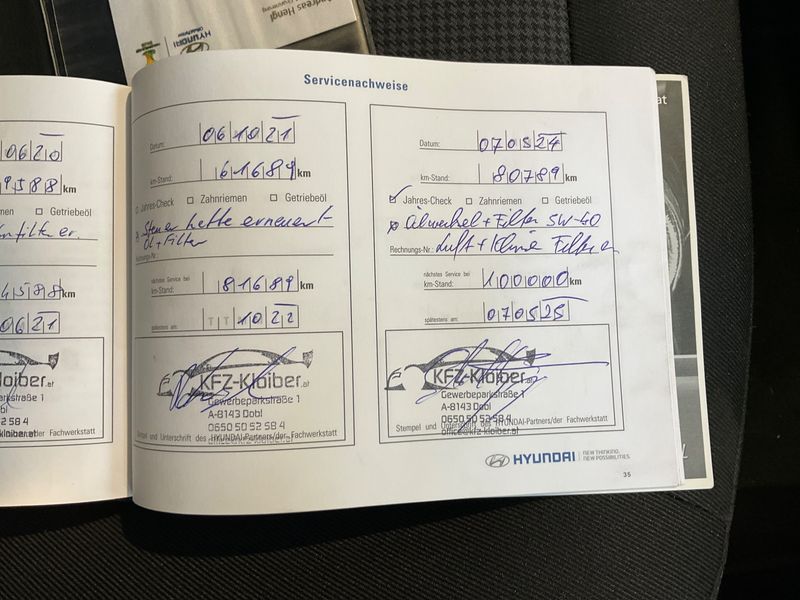 Andreas Hengl
HYUNDAI
Servicenachweise
0620
9588 km
men Getriebeöl
nfilter er.
4588 km
0621
Kloiber.at
der Fachwerkstatt
Datum: 061021
km-Stand: 61689 km
Jahres-Check Zahnriemen Getriebeöl
Steuerkette erneuert
Öl+Filter
Rechnungs-Nr.:
nächstes Service bei
km-Stand: 81689 km
spätestens am: TT1022
KFZ-Kloiber.at
Gewerbeparkstraße 1
A-8143 Dobl
0650 50 52 58 4
Stempel und Unterschrift des HYUNDAI-Partners/der Fachwerkstatt
office@kfz-kloiber.at
Datum: 070524
km-Stand: 80789 km
Jahres-Check Zahnriemen Getriebeöl
Ölwechsel + Filter 5W-40
Rechnungs-Nr.: Luft + Klima Filter er
nächstes Service bei
km-Stand: 100000 km
spätestens am: 070525
KFZ-Kloiber.at
Gewerbeparkstraße 1
A-8143 Dobl
0650 50 52 58 4
Stempel und Unterschrift des HYUNDAI-Partners/der Fachwerkstatt
office@kfz-kloiber.at
HYUNDAI NEW THINKING.
NEW POSSIBILITIES.
35
at